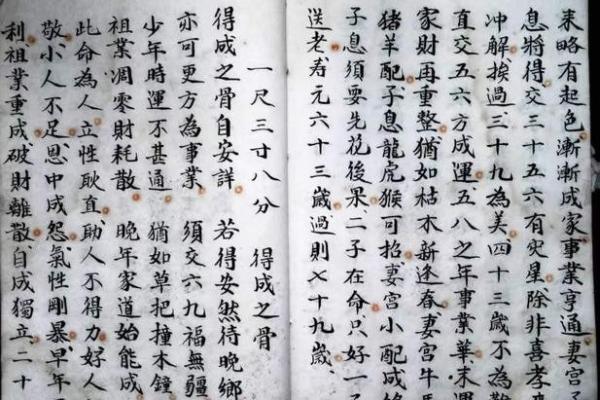 来略有起色漸漸成家事業亨通妻宮子
息將得交三十五六有灾星除非喜孝來
冲解挨過三十九為美四十三歲不為難
直交五六方成運五八之年事業華末運
家財再重整猶如枯木新逢春妻宮牛馬
猪羊配子息龍虎猴可招妻宮小配成
子息須要先花後果二子在命只好一子
送老寿元六十三歲過則乂十九歲
一尺三寸八分 得成之骨
得成之骨自安詳 若得安然待晚鄉
亦可更方為事業 須交六九福無疆
少年時運不甚通 猶如草把撞木鐘
祖業凋零財耗散 晚年家道始能成
此命為人立性耿直助人不得力好人
敬小人不足恩中成怨氣性剛暴早年
利祖業重成破財離散自成獨立二十